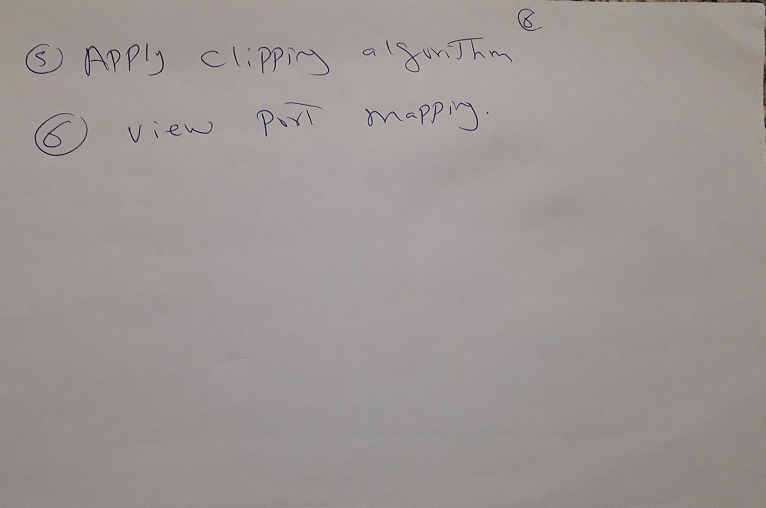 ⑧
⑤ Apply clipping algorithm
⑥ view port mapping.